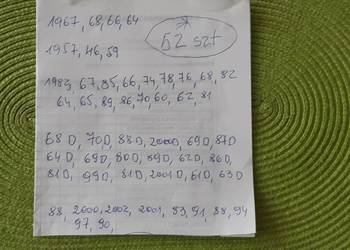 1967, 68, 66, 64
52 szt
1957, 46, 59
1983, 67, 85, 66, 74, 78, 76, 68, 82
64, 65, 89, 86, 70, 60, 62, 81
68 D, 70 D, 88 D, 2000 D, 69 D, 87 D
64 D, 69 D, 80 D, 89 D, 62 D, 86 D
81 D, 99 D, 81 D, 2001 D, 61 D, 63 D
88, 2000, 2002, 2001, 83, 91, 88, 94
97, 90,